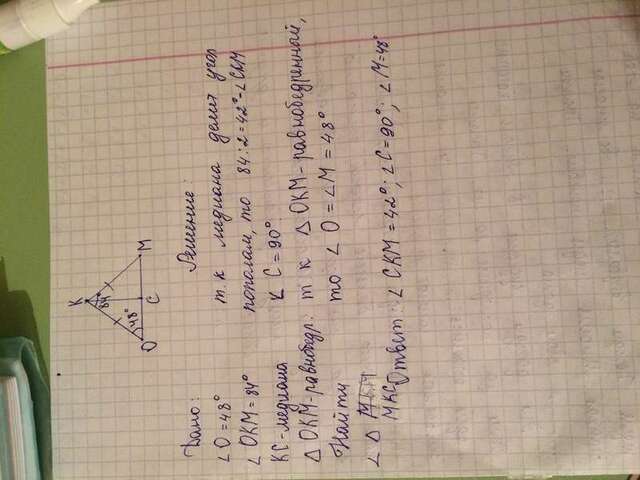 K
84°
48°
O
C
M
Дано:
∠O=48°
∠OKM=84°
KC-медиана
△OKM-равнобедр.
Найти
∠△
MKC
Решение:
т.к медиана делит угол
пополам, то 84:2=42°-∠CKM
∠C=90°.
т к △OKM-равнобедренный,
то ∠O=∠M=48°
Ответ: ∠CKM=42°; ∠C=90°; ∠M=48°